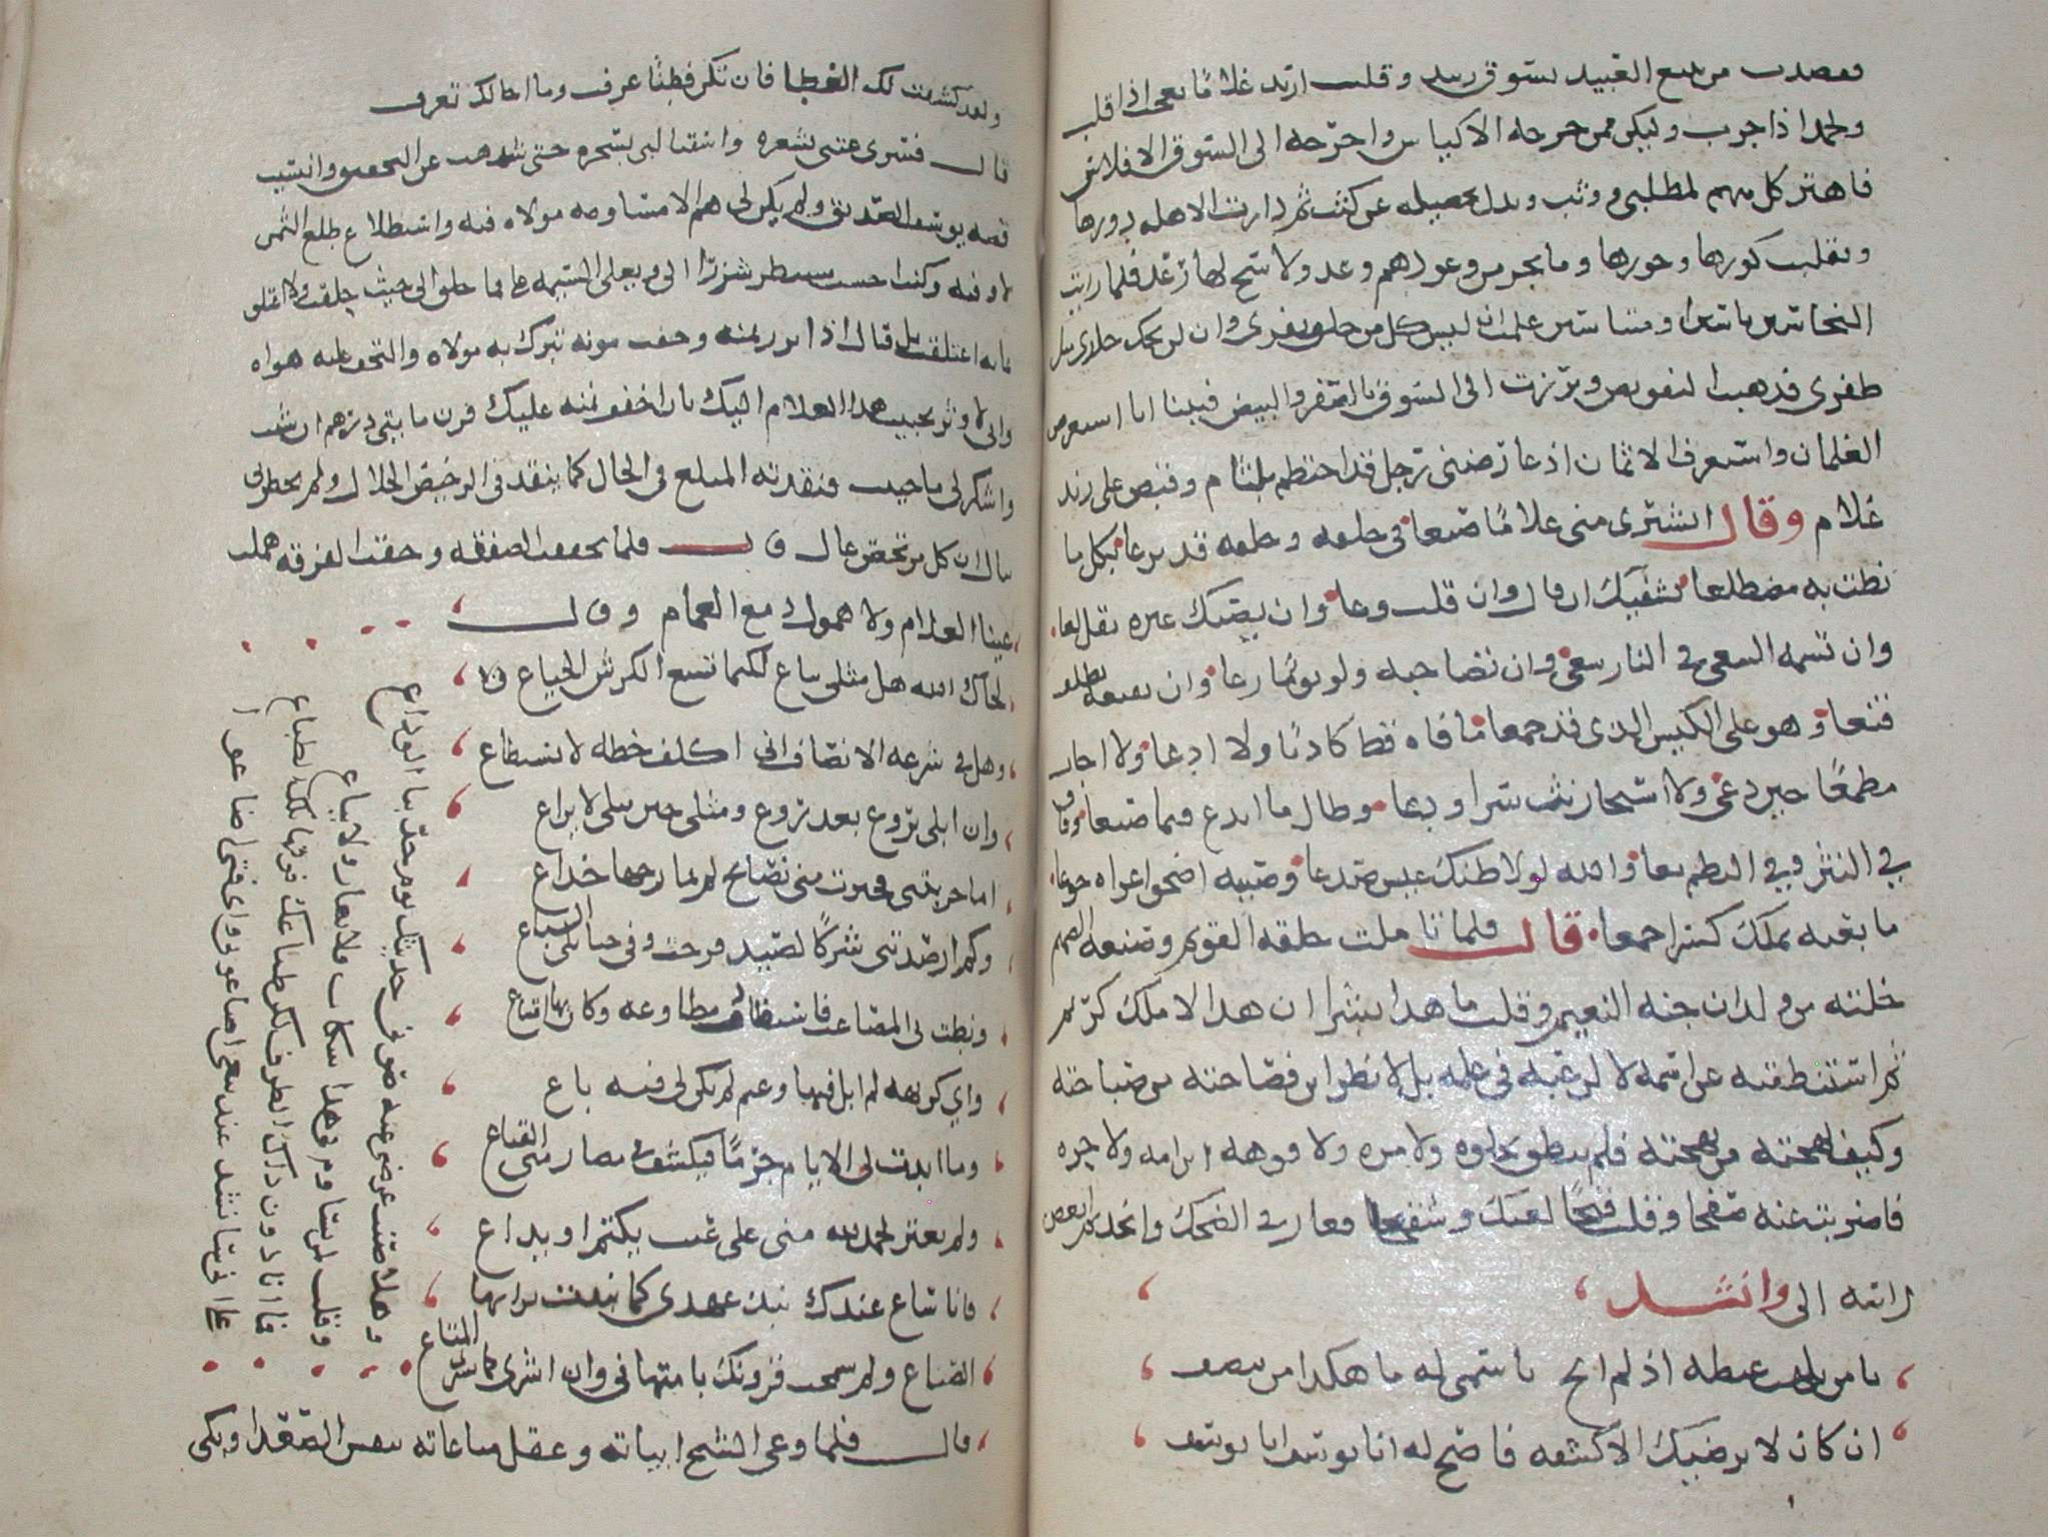 فقصدت من يبيع العبيد بسوق زبيد وقلت اريد غلامًا يعجب اذا قلب
ويحمد اذا جرب وليكن ممن خرجه الاكياس واخرجه الى السوق الافلاس
فاهتز كل منهم لمطلبي ووثب وبذل تحصيله عن كثب ثم دارت الاهله دورها
وتقلبت كورها وحورها وما نجز من وعودهم وعد ولا سح لها رعد فلما رايت
النخاسين ناسين او متناسين علمت ان ليس كل من خلق يفري وان لن يحك جلدي مثل
ظفري فذهبت التفويض وبرزت الى السوق بالصفر والبيض فبينا انا استعرض
الغلمان واستعرف الاثمان اذ عارضني رجل قد اختطم بلثام وقبض على زند
غلام وقال اشترى مني غلامًا صنعا في خلقه وخلقه قد برعا بكل ما
نطت به مضطلعا يشفيك ان قال وان قلت وعا وان يصبك عثره يقل لعا
وان تسمه السعي في النار سعى وان تصاحبه ولو يومًا رعا وان تقنعه بظلف
قنعا وهو على الكيس الذي قد جمعا ما فاه قط كاذبًا ولا ادعا ولا اجاب
مطمعًا حين دعى ولا استجاز نث سر اودعا وطال ما ابدع فيما صنعا وفاق
في النثر وفي النظم معا والله لولا ضنك عيش صدعا وصبيه اضحوا عراه جوعا
ما بعته بملك كسرا جمعا قال فلما تاملت خلقه القويم وحسنه الصميم
خلته من ولدان جنه النعيم وقلت ما هذا بشرا ان هذا الا ملك كريم
ثم استنطقته عن اسمه لا لرغبه في علمه بل لانظر اين فصاحته من صباحته
وكيف لهجته من بهجته فلم ينطق بحلوه ولا مره ولا فوهه ابن امه ولا حره
فاضربت عنه صفحا وقلت قبحًا لعيك وشقحا فغار في الضحك وانجد ثم انغض
راسه الى وانشد
يا من تلهب غيظه اذ لم ابح باسمي له ما هكذا من ينصف
ان كان لا يرضيك الا كشفه فاصخ له انا يوسف انا يوسف
ولقد كشفت لك الغطا فان تكن فطنًا عرفت وما اخالك تعرف
قال فسرى عتبي بشعره واستبا لبي بسحره حتى شدهت عن التحقيق وانسيت
قصه يوسف الصديق ولم يكن لي هم الا مساومه مولاه فيه واستطلاع طلع الثمن
لاوفيه وكنت احسب سينظر شزرًا الي ويغلي السيمه علي فما حلق الى حيث حلقت ولا اعتلق
بما به اعتلقت بل قال اذا نزر ثمنه وخفت مونه تبرك به مولاه والتحف عليه هواه
واني لاوثر تحبيب هذا الغلام اليك بان اخفف ثمنه عليك فزن مايتي درهم ان شيت
واشكر لي ما حييت فنقدته المبلغ في الحال كما ينقد في الرخيص الحلال ولم يخطر لي
ببال ان كل مرتخص غال قال فلما تحققت الصفقه وحقت الفرقه هملت
عينا الغلام ولا همول دمع الغمام وقال
لحاك الله هل مثلي يباع لكيما تشبع الكرش الجياع
وهل في شرعه الانصاف اني اكلف خطه لا تستطاع
وان ابلى بروع بعد روع ومثلي حين يبلى لا يراع
اما جربتني فخبرت مني نصايح لم يمازجها خداع
وكم ارصدتني شركًا لصيد فرحت وفي حبايلي السباع
ونطت لي المصاعب فاستقادت مطاوعه وكان بها امتناع
واي كريهه لم ابل فيها وغنم لم يكن لي فيه باع
وما ابدت لي الايام جرمًا فيكشف في مصارمتي القناع
ولم يعثر بحمد الله مني على عيب يكتم او يذاع
فانا ساغ عندك نبذ عهدي كما نبذت برايتها
الصناع ولم سمحت قرونك بامتهاني وان اشرى كما يشرى المتاع
وهلا صنت عرضي عنه صوني حديثك يوم جد بنا الوداع
وقلت لمن يساوم في هذا سكاب فلا يعار ولا يباع
فما انا دون ذاك الطرف لكن طباعك فوقها تلك الطباع
على اني سانشد عند بيعي اضاعوني واي فتى اضاعوا
قال فلما وعى الشيخ ابياته وعقل مناغاته تنفس الصعدا وبكى